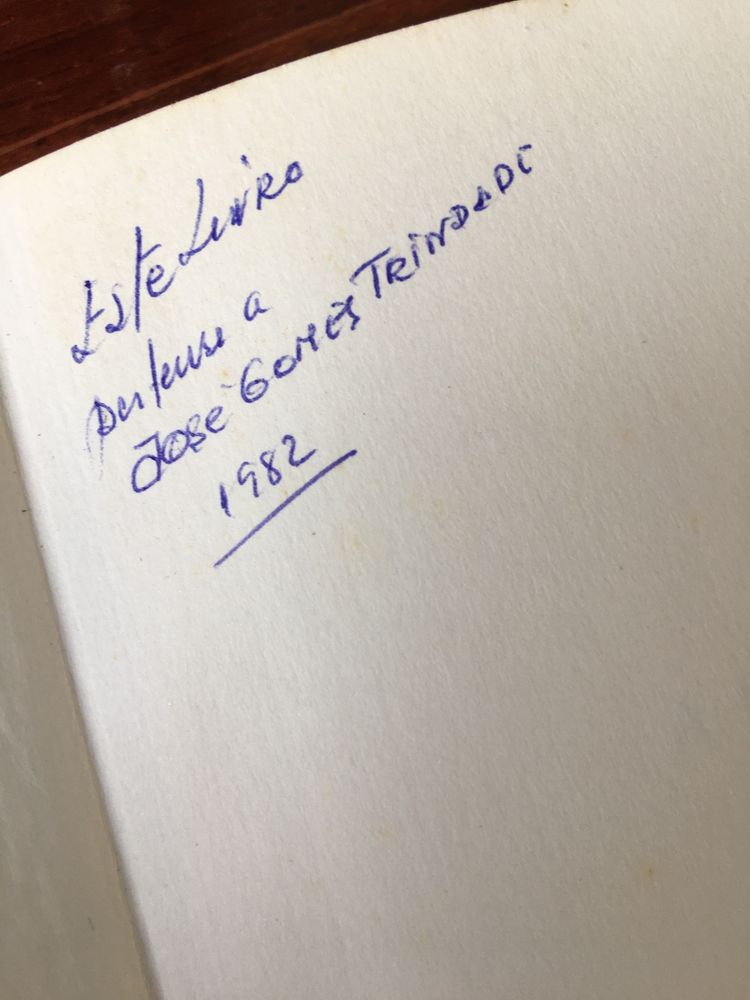 Este Livro
pertense a
José Gomes Trindade
1982